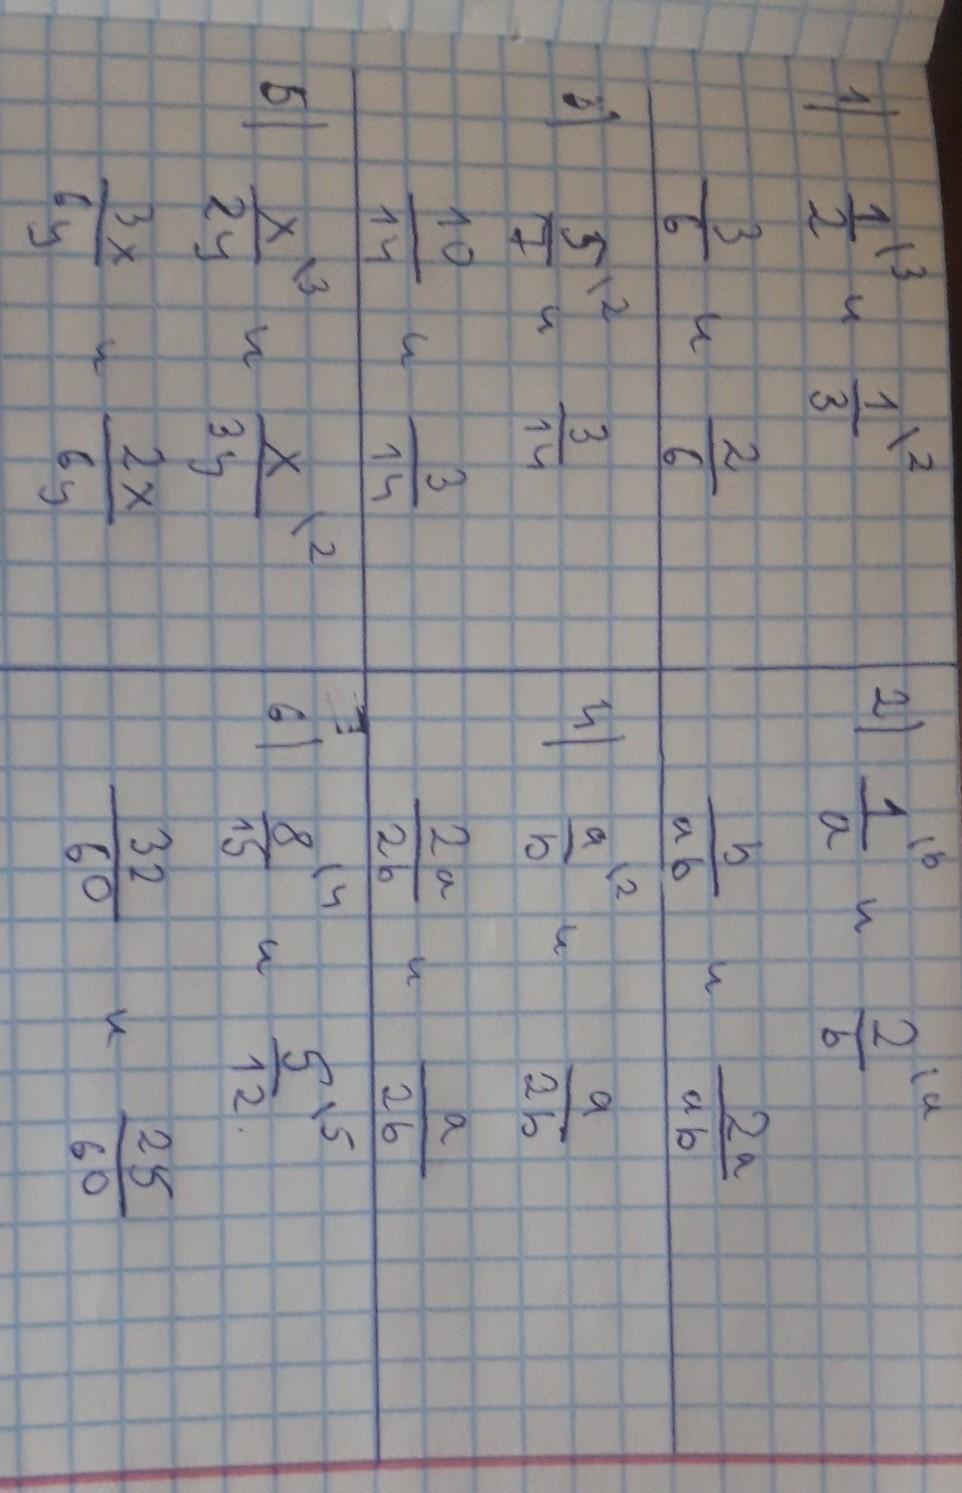 1) 1/2 \3 и 1/3 \2
3/6 и 2/6
2) 1/a \b и 2/b \a
b/ab и 2a/ab
3) 5/7 \2 и 3/14
10/14 и 3/14
4) a/b \2 и a/2b
2a/2b и a/2b
5) x/2y \3 и x/3y \2
3x/6y и 2x/6y
6) 8/15 \4 и 5/12 \5
32/60 и 25/60